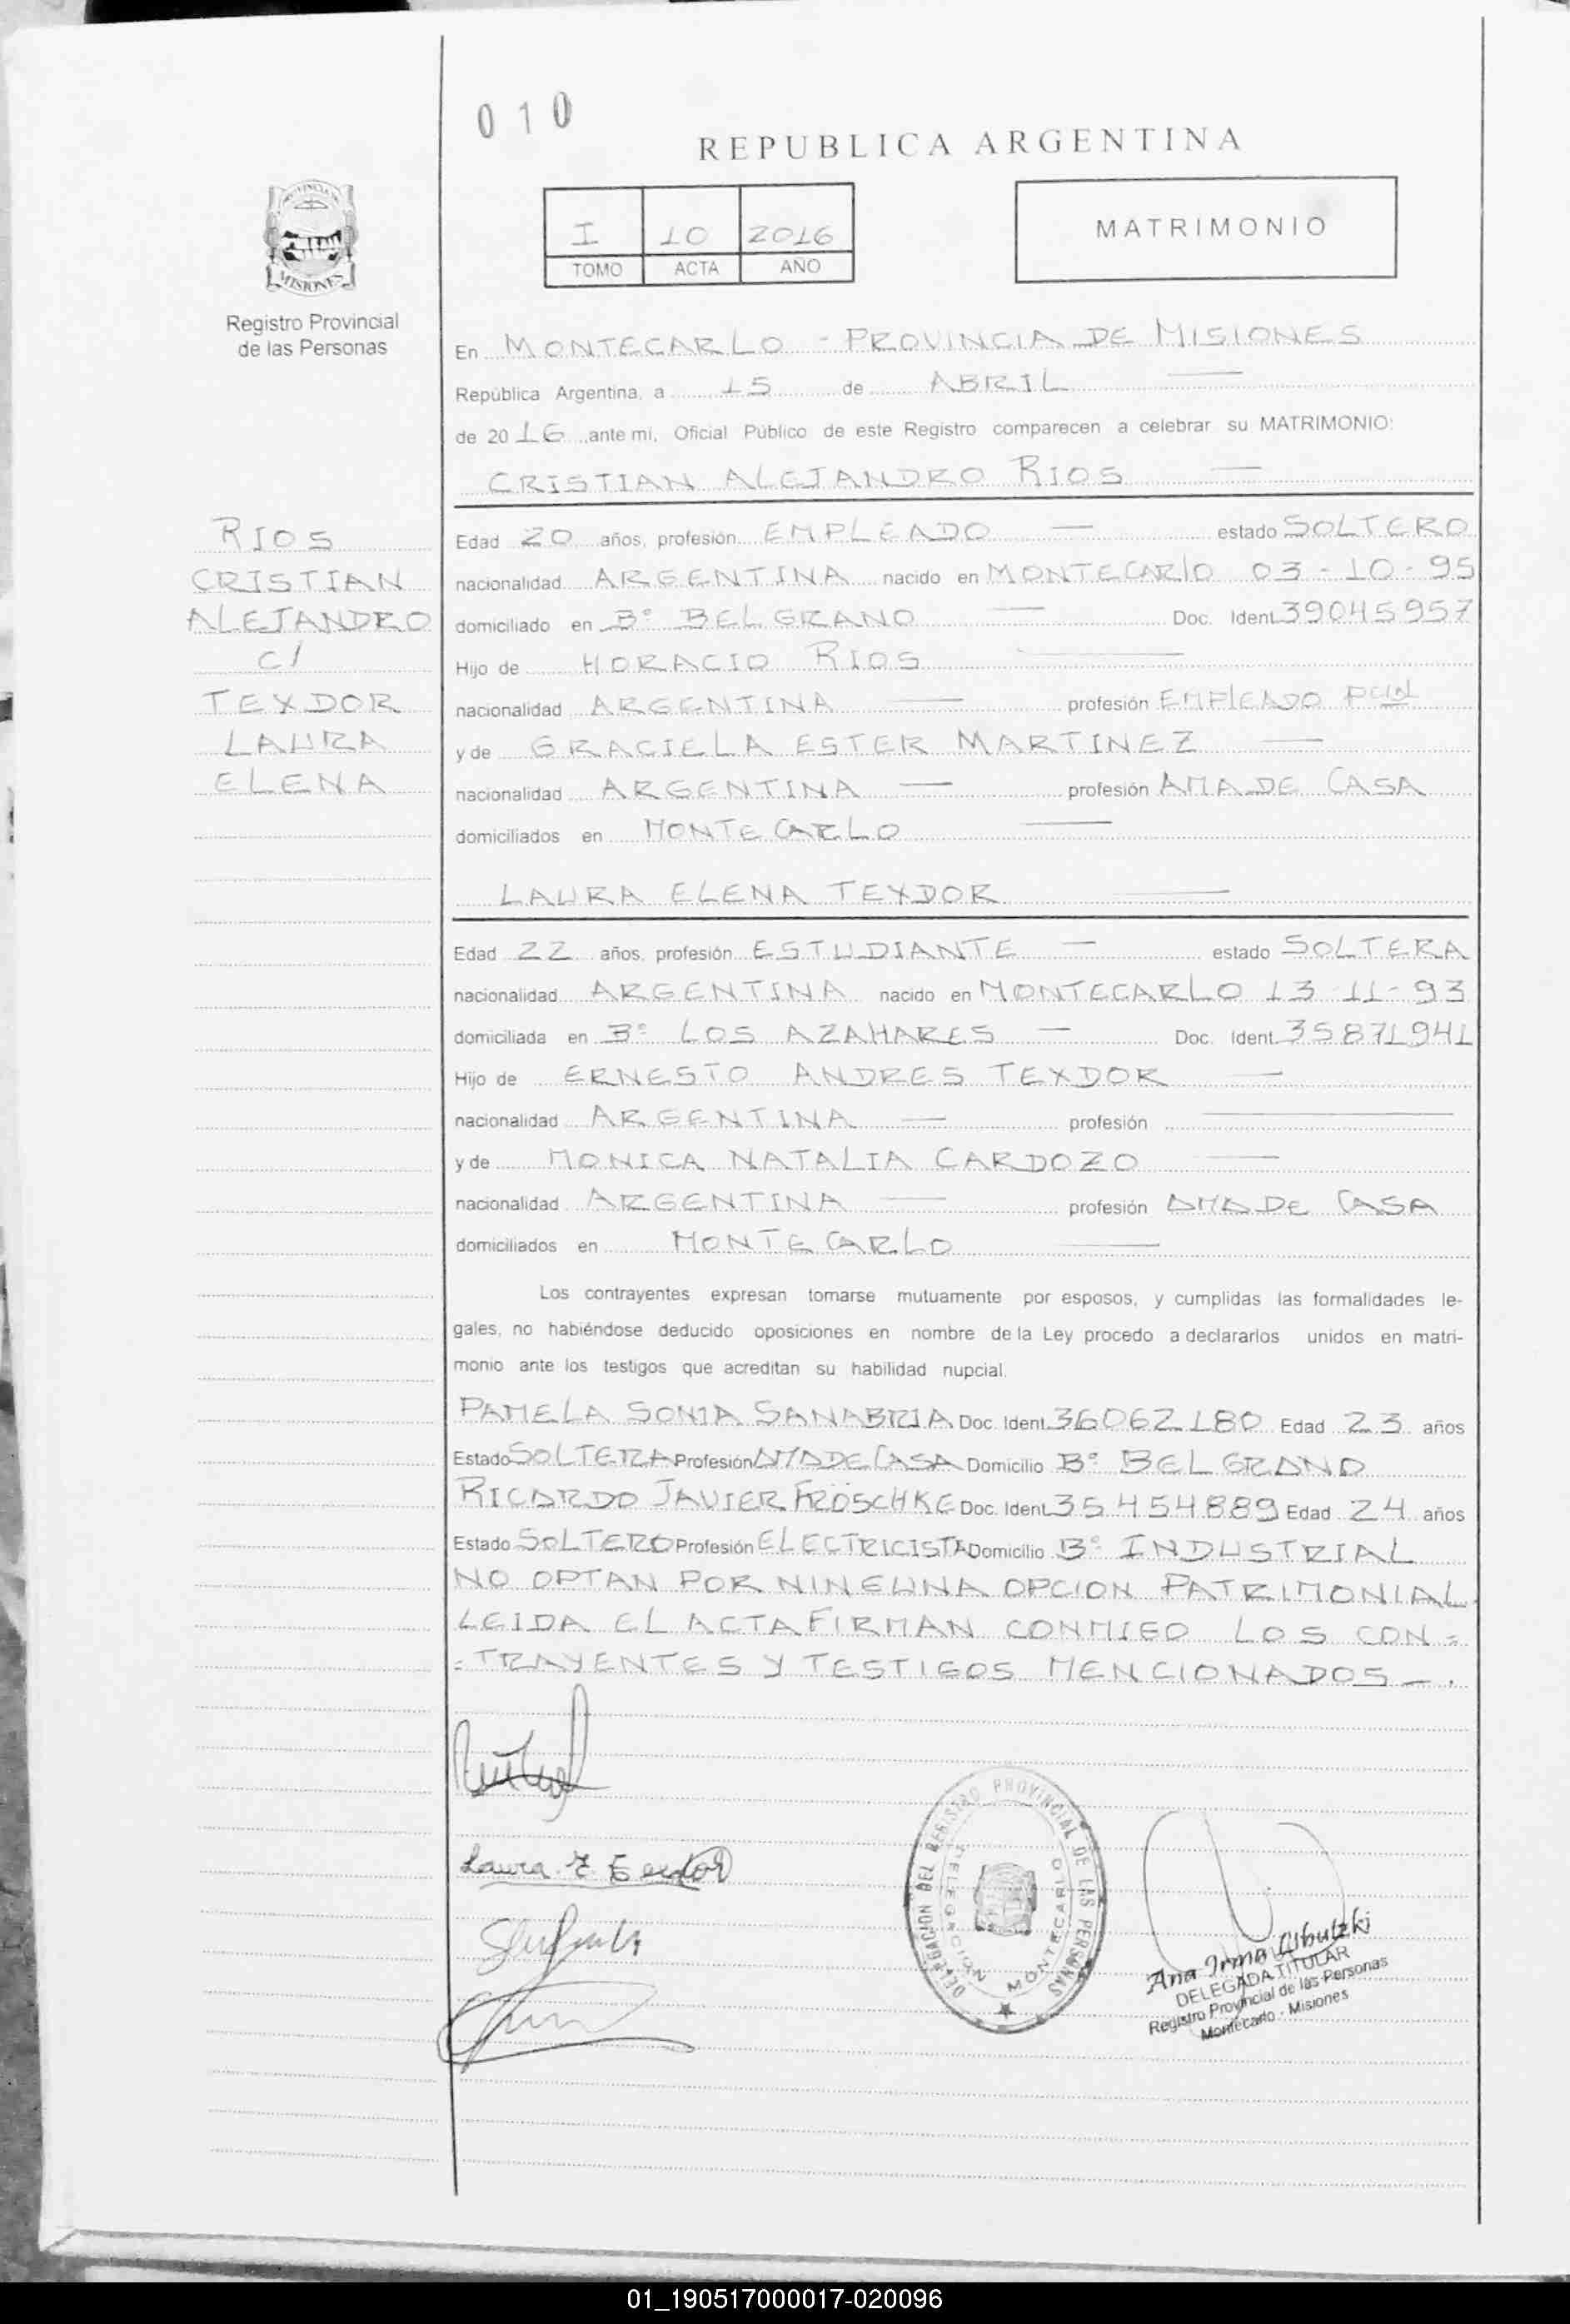 010
REPUBLICA ARGENTINA
I 10 2016
TOMO ACTA AÑO
MATRIMONIO
MISIONES
Registro Provincial
de las Personas
En MONTECARLO - PROVINCIA DE MISIONES
República Argentina, a 15 de ABRIL
de 2016, ante mi, Oficial Público de este Registro comparecen a celebrar su MATRIMONIO:
CRISTIAN ALEJANDRO RIOS
RIOS
CRISTIAN
ALEJANDRO
C/
TEXDOR
LAURA
ELENA
Edad 20 años, profesión EMPLEADO estado SOLTERO
nacionalidad ARGENTINA nacido en MONTECARLO 03-10-95
domiciliado en B° BELGRANO Doc. Ident. 39045957
Hijo de HORACIO RIOS
nacionalidad ARGENTINA profesión EMPLEADO PCIAL
y de GRACIELA ESTER MARTINEZ
nacionalidad ARGENTINA profesión AMA DE CASA
domiciliados en MONTECARLO
LAURA ELENA TEXDOR
Edad 22 años, profesión ESTUDIANTE estado SOLTERA
nacionalidad ARGENTINA nacido en MONTECARLO 13-11-93
domiciliada en B° LOS AZAHARES Doc. Ident. 35871941
Hijo de ERNESTO ANDRES TEXDOR
nacionalidad ARGENTINA profesión
y de MONICA NATALIA CARDOZO
nacionalidad ARGENTINA profesión AMA DE CASA
domiciliados en MONTECARLO
Los contrayentes expresan tomarse mutuamente por esposos, y cumplidas las formalidades le-
gales, no habiéndose deducido oposiciones en nombre de la Ley procedo a declararlos unidos en matri-
monio ante los testigos que acreditan su habilidad nupcial.
PAMELA SONIA SANABRIA Doc. Ident. 36062180 Edad 23 años
Estado SOLTERA Profesión AMA DE CASA Domicilio B° BELGRANO
RICARDO JAVIER FRÖSCHKE Doc. Ident. 35454889 Edad 24 años
Estado SOLTERO Profesión ELECTRICISTA Domicilio B° INDUSTRIAL
NO OPTAN POR NINGUNA OPCION PATRIMONIAL.
LEIDA EL ACTA FIRMAN CONMIGO LOS CON=
=TRAYENTES Y TESTIGOS MENCIONADOS-.
Laura E. Texdor
DELEGACION DEL REGISTRO PROVINCIAL DE LAS PERSONAS
DELEGACION MONTECARLO
Ana Irma
DELEGADA TITULAR
Registro Provincial de las Personas
Montecarlo - Misiones
01_190517000017-020096